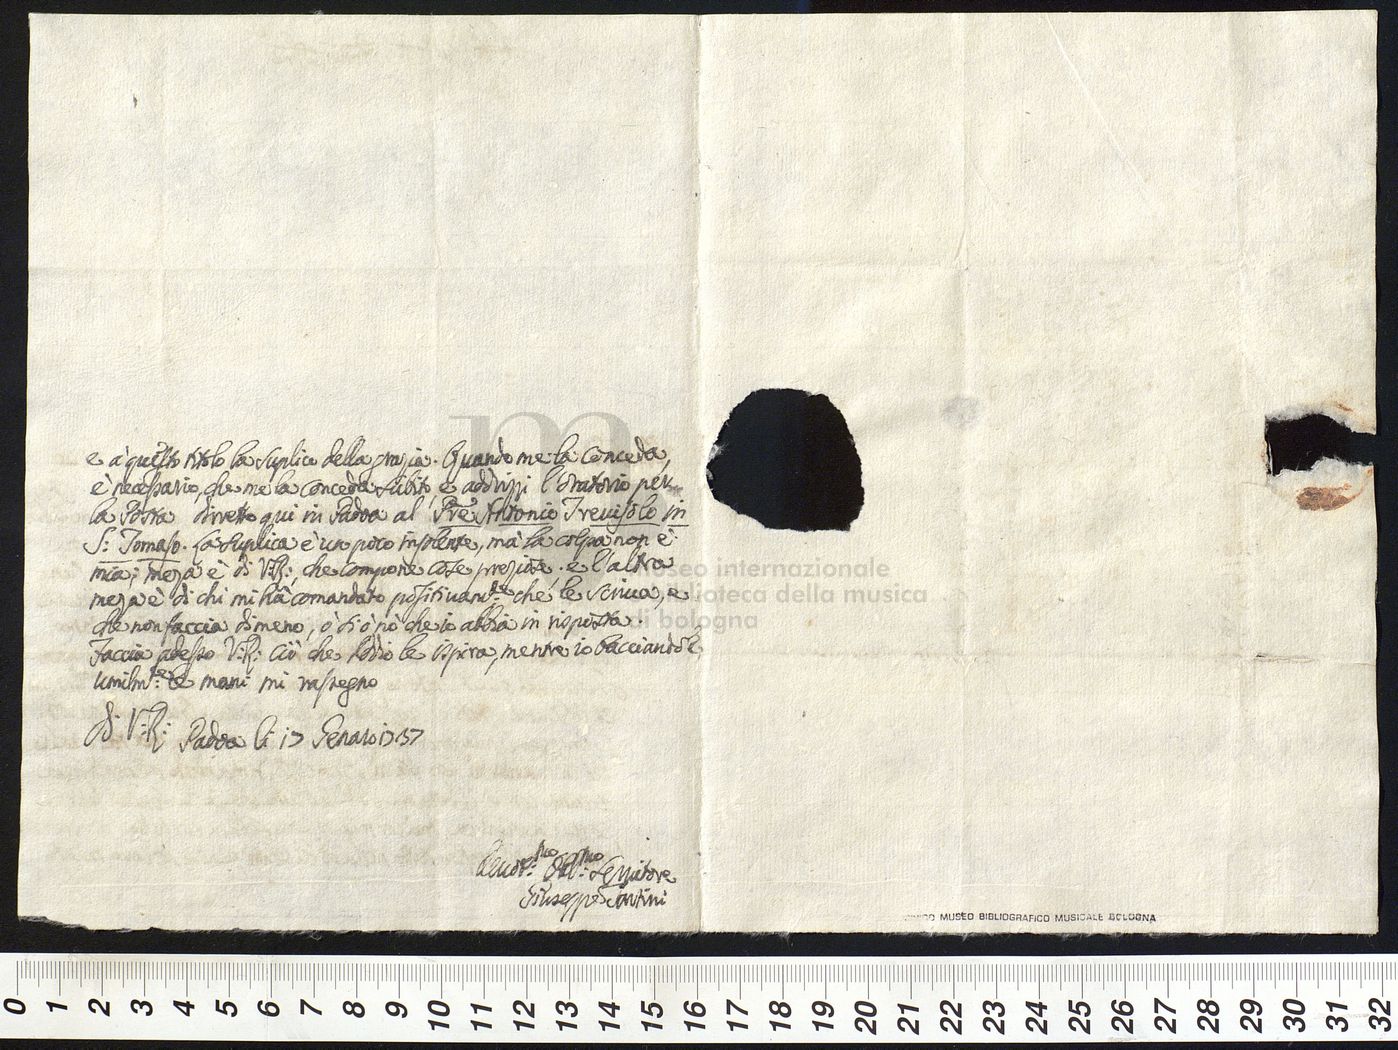 e à questo titolo la suplico della grazia. Quando me la conceda,
è necessario, che me la conceda subito e addrizzi l'oratorio per
la Posta diretto qui in Padova al Pre Antonio Trevisolo in
S: Tomaso. La suplica è un poco insolente, mà la colpa non è
mia; meza è di V:R:, che compone cose preziose. e l'altra
meza è di chi mi hà comandato positivam.te che le scriva, e
che non faccia dimeno, o sì ò nò che io abbia in risposta.
Faccia adesso V:R: ciò che Iddio le ispira, mentre io bacciandole
umilm.te le mani mi rassegno
di V:R: Padova li 17 Genaro 1737
Devot.mo Obl.mo Servitore
Giuseppe Tartini
m
museo internazionale
e biblioteca della musica
di bologna
CIVICO MUSEO BIBLIOGRAFICO MUSICALE BOLOGNA
0 1 2 3 4 5 6 7 8 9 10 11 12 13 14 15 16 17 18 19 20 21 22 23 24 25 26 27 28 29 30 31 32